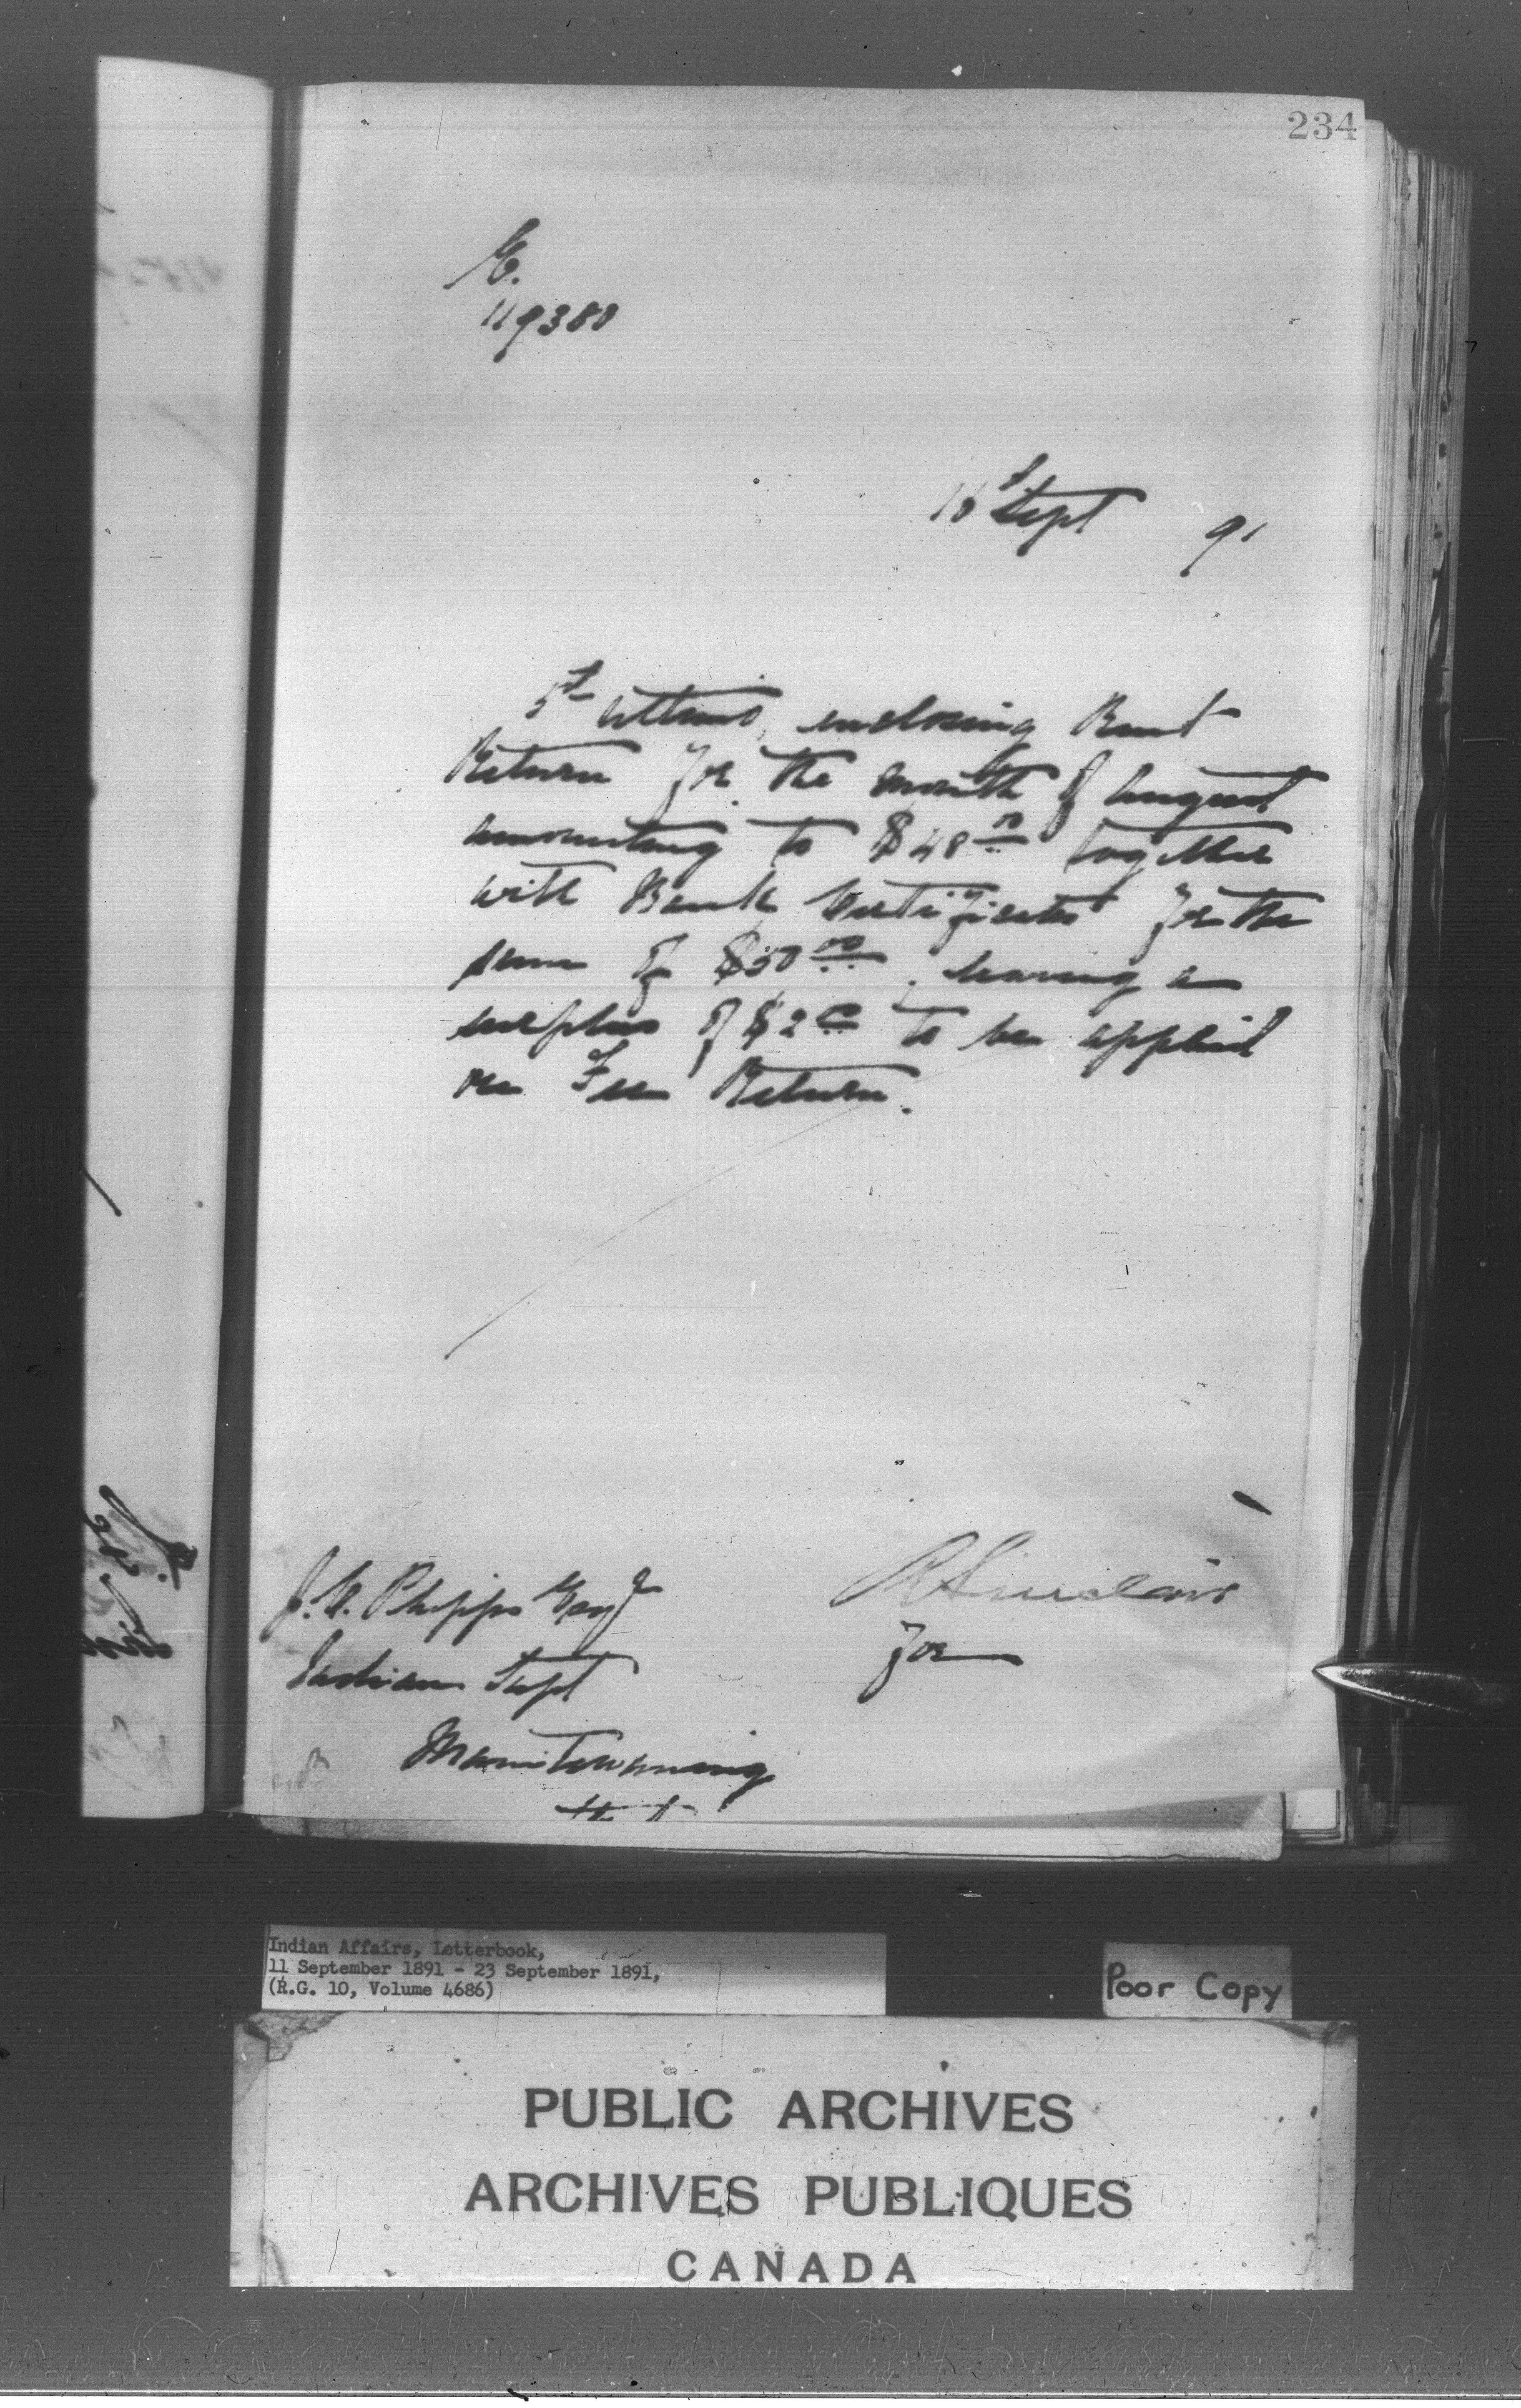 234
E.
119380
16 Sept 91
5th ultimo, enclosing Rent
Return for the month of August
amounting to $48.00 together
with Bank Certificates for the
sum of $50.00, leaving a
surplus of $2.00 to be applied
on Fee Return.
R Sinclair
for
J. C. Phipps Esqr
Indian Supt
Manitowaning
Indian Affairs, Letterbook,
11 September 1891 - 23 September 1891,
(R.G. 10, Volume 4686)
Poor Copy
PUBLIC ARCHIVES
ARCHIVES PUBLIQUES
CANADA